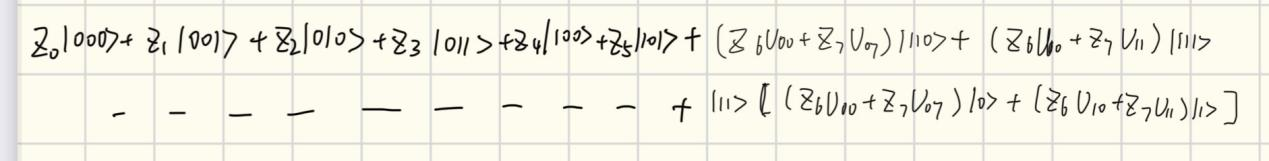 Z₀|000> + Z₁|001> + Z₂|010> + Z₃|011> + Z₄|100> + Z₅|101> + (Z₆U₀₀ + Z₇U₀₇)|110> + (Z₆U₁₀ + Z₇U₁₁)|111>
- - - - - - - - - + |11> [ (Z₆U₀₀ + Z₇U₀₇)|0> + (Z₆U₁₀ + Z₇U₁₁)|1> ]